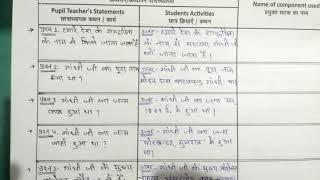 Pupil Teacher's Statements
छात्राध्यापक कथन / कार्य
Students Activities
छात्र क्रियाएँ / कथन
Name of component used
प्रयुक्त घटक का नाम
प्रश्न 1. हमारे देश के राष्ट्रपिता
के नाम से किसे जाना जाता
है
उत्तर- हमारे देश के राष्ट्रपिता
के नाम से महात्मा गाँधी जी
को जाना जाता है।
प्रश्न 2. गाँधी जी का पूरा नाम
क्या था ?
उत्तर- गाँधी जी का पूरा नाम
मोहन दास करमचन्द गाँधी था।
प्रश्न 3. गाँधी जी का जन्म
कब हुआ था ?
उत्तर- गाँधी जी का जन्म
1869 ई. में हुआ था।
प्रश्न 4. गाँधी जी का जन्म
कहाँ हुआ था ?
उत्तर- गाँधी जी का जन्म
पोरबन्दर गुजरात में
हुआ था।
प्रश्न 5. गाँधी जी के मुख्य
उत्तर- गाँधी जी के मुख्य